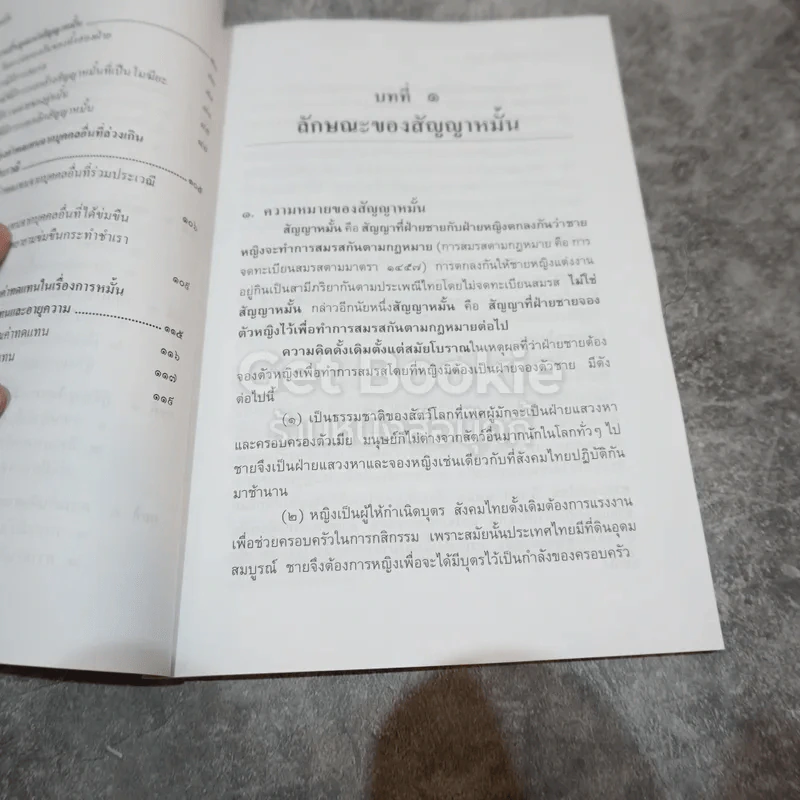 สัญญาหมั้นที่เป็นโมฆียะ
สัญญาหมั้น
ค่าทดแทนจากบุคคลอื่นที่ล่วงเกิน
๑๐๕
ทดแทนจากบุคคลอื่นที่ร่วมประเวณี
ทดแทนจากบุคคลอื่นที่ได้ข่มขืน
๑๐๖
ยามข่มขืนกระทำชำเรา
๑๐๙
ค่าทดแทนในเรื่องการหมั้น
ทนและอายุความ
๑๑๕
ค่าทดแทน
๑๑๖
แทน
๑๑๗
๑๑๙
บทที่ ๑
ลักษณะของสัญญาหมั้น
๑. ความหมายของสัญญาหมั้น
สัญญาหมั้น คือ สัญญาที่ฝ่ายชายกับฝ่ายหญิงตกลงกันว่าชาย
หญิงจะทำการสมรสกันตามกฎหมาย (การสมรสตามกฎหมาย คือ การ
จดทะเบียนสมรสตามมาตรา ๑๔๕๗) การตกลงกันให้ชายหญิงแต่งงาน
อยู่กินเป็นสามีภริยากันตามประเพณีไทยโดยไม่จดทะเบียนสมรส ไม่ใช่
สัญญาหมั้น กล่าวอีกนัยหนึ่งสัญญาหมั้น คือ สัญญาที่ฝ่ายชายจอง
ตัวหญิงไว้เพื่อทำการสมรสกันตามกฎหมายต่อไป
ความคิดดั้งเดิมตั้งแต่สมัยโบราณในเหตุผลที่ว่าฝ่ายชายต้อง
จองตัวหญิงเพื่อทำการสมรสโดยที่หญิงมิต้องเป็นฝ่ายจองตัวชาย มีดัง
ต่อไปนี้
Get Bookie
ร้านหนังสือเก็ตบุ๊กกี้
(๑) เป็นธรรมชาติของสัตว์โลกที่เพศผู้มักจะเป็นฝ่ายแสวงหา
และครอบครองตัวเมีย มนุษย์ก็ไม่ต่างจากสัตว์อื่นมากนักในโลกทั่วๆ ไป
ชายจึงเป็นฝ่ายแสวงหาและจองหญิงเช่นเดียวกับที่สังคมไทยปฏิบัติกัน
มาช้านาน
(๒) หญิงเป็นผู้ให้กำเนิดบุตร สังคมไทยดั้งเดิมต้องการแรงงาน
เพื่อช่วยครอบครัวในการกสิกรรม เพราะสมัยนั้นประเทศไทยมีที่ดินอุดม
สมบูรณ์ ชายจึงต้องการหญิงเพื่อจะได้มีบุตรไว้เป็นกำลังของครอบครัว